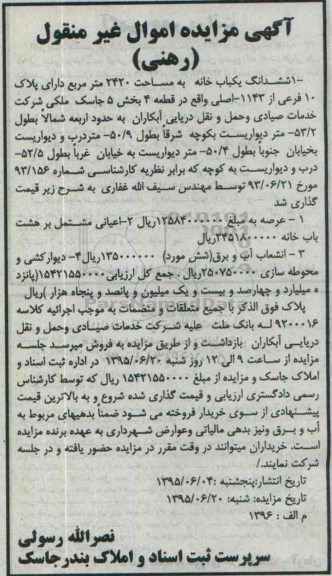 آگهی مزایده اموال غیر منقول
(رهنی)
۱-ششدانگ یکباب خانه به مساحت ۲۴۲۰ متر مربع دارای پلاک
۱۰ فرعی از ۱۱۴۳-اصلی واقع در قطعه ۴ بخش ۵ جاسک ملکی شرکت
خدمات صیادی وحمل و نقل دریایی آبکاران به حدود اربعه شمالا بطول
۵۳/۲- متر دیواریست بکوچه شرقا بطول ۵۰/۹- متردرب و دیواریست
بخیابان جنوبا بطول ۵۰/۴- متر دیواریست به خیابان غربا بطول ۵۲/۵-
درب و دیواریست به کوچه که برابر نظریه کارشناسی شماره ۹۳/۱۵۶
مورخ ۹۳/۰۶/۲۱ توسط مهندس سیف الله غفاری به شرح زیر قیمت
گذاری شد
۱ - عرصه به مبلغ ۱۲۵۸۴۰۰۰۰۰۰ریال ۲-اعیانی مشتمل بر هشت
باب خانه ۲۴۵۱۸۰۰۰۰۰ریال
۳ - انشعاب آب و برق(شش مورد) ۱۳۵۰۰۰۰۰۰ریال۴- دیوارکشی و
محوطه سازی ۲۵۰۷۵۰۰۰۰ریال . جمع کل ارزیابی ۱۵۴۲۱۵۵۰۰۰۰(پانزد
ه میلیارد و چهارصد و بیست و یک میلیون و پانصد و پنجاه هزار )ریال
پلاک فوق الذکر با جمیع متعلقات و منضمات به موجب اجرائیه کلاسه
۹۲۰۰۰۱۶ له بانک ملت علیه شرکت خدمات صیادی وحمل و نقل
دریایی آبکاران بازداشت و از طریق مزایده به فروش میرسد جلسه
مزایده از ساعت ۹ الی ۱۲ روز شنبه ۱۳۹۵/۰۶/۲۰ در اداره ثبت اسناد و
املاک جاسک و مزایده از مبلغ ۱۵۴۲۱۵۵۰۰۰۰ ریال که توسط کارشناس
رسمی دادگستری ارزیابی و قیمت گذاری شده شروع و به بالاترین قیمت
پیشنهادی از سوی خریدار فروخته می شود ضمنا بدهیهای مربوط به
آب و برق ونیز بدهی مالیاتی وعوارض شهرداری به عهده برنده مزایده
است. خریداران میتوانند در وقت مقرر در مزایده حضور یافته و در جلسه
شرکت نمایند./
تاریخ انتشار:پنجشنبه :۱۳۹۵/۰۶/۰۴
تاریخ مزایده: شنبه: ۱۳۹۵/۰۶/۲۰
م الف : ۱۳۹۶
نصرالله رسولی
سرپرست ثبت اسناد و املاک بندرجاسک